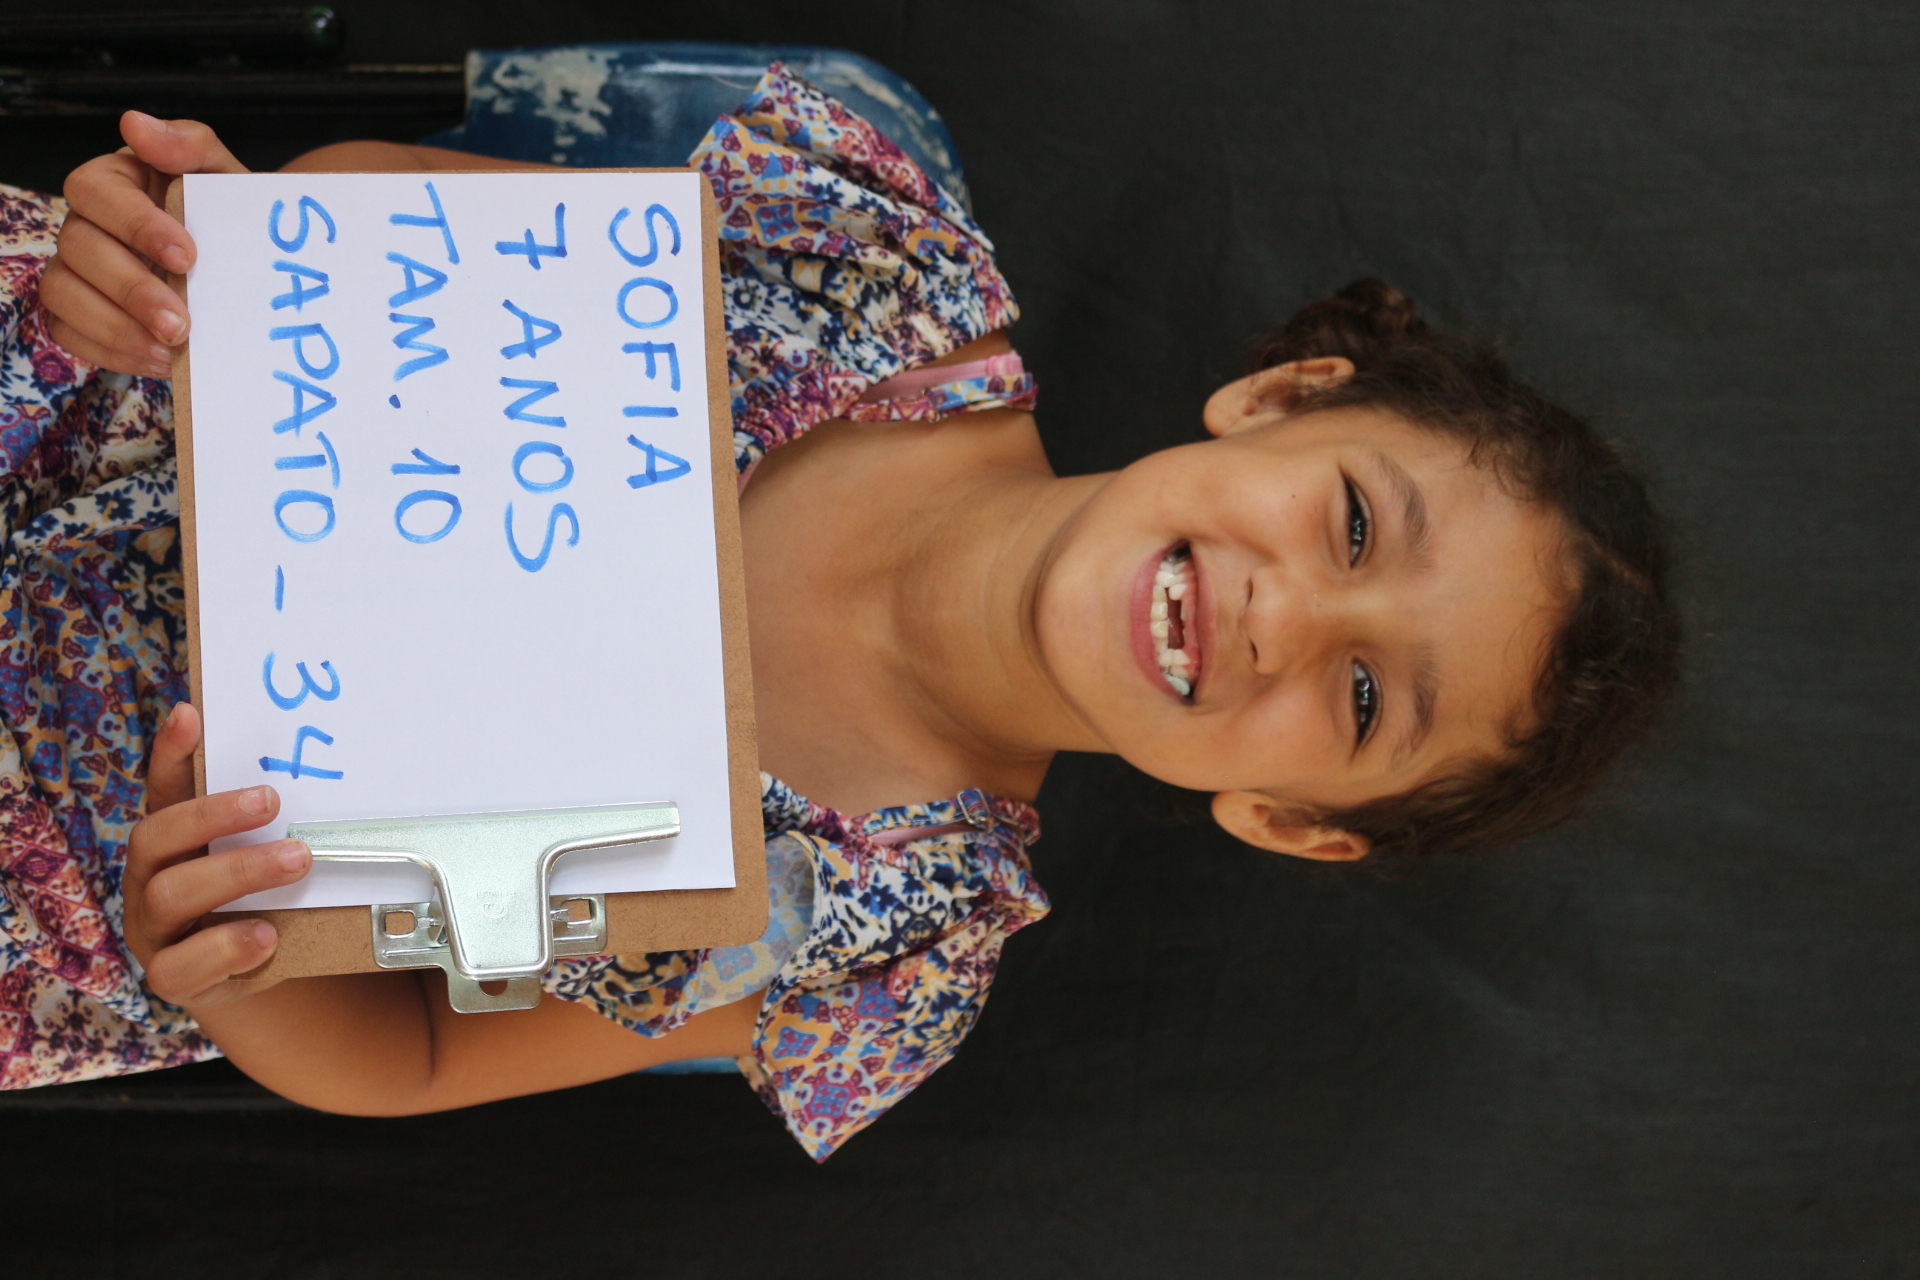 SOFIA
7 ANOS
TAM. 10
SAPATO _ 34